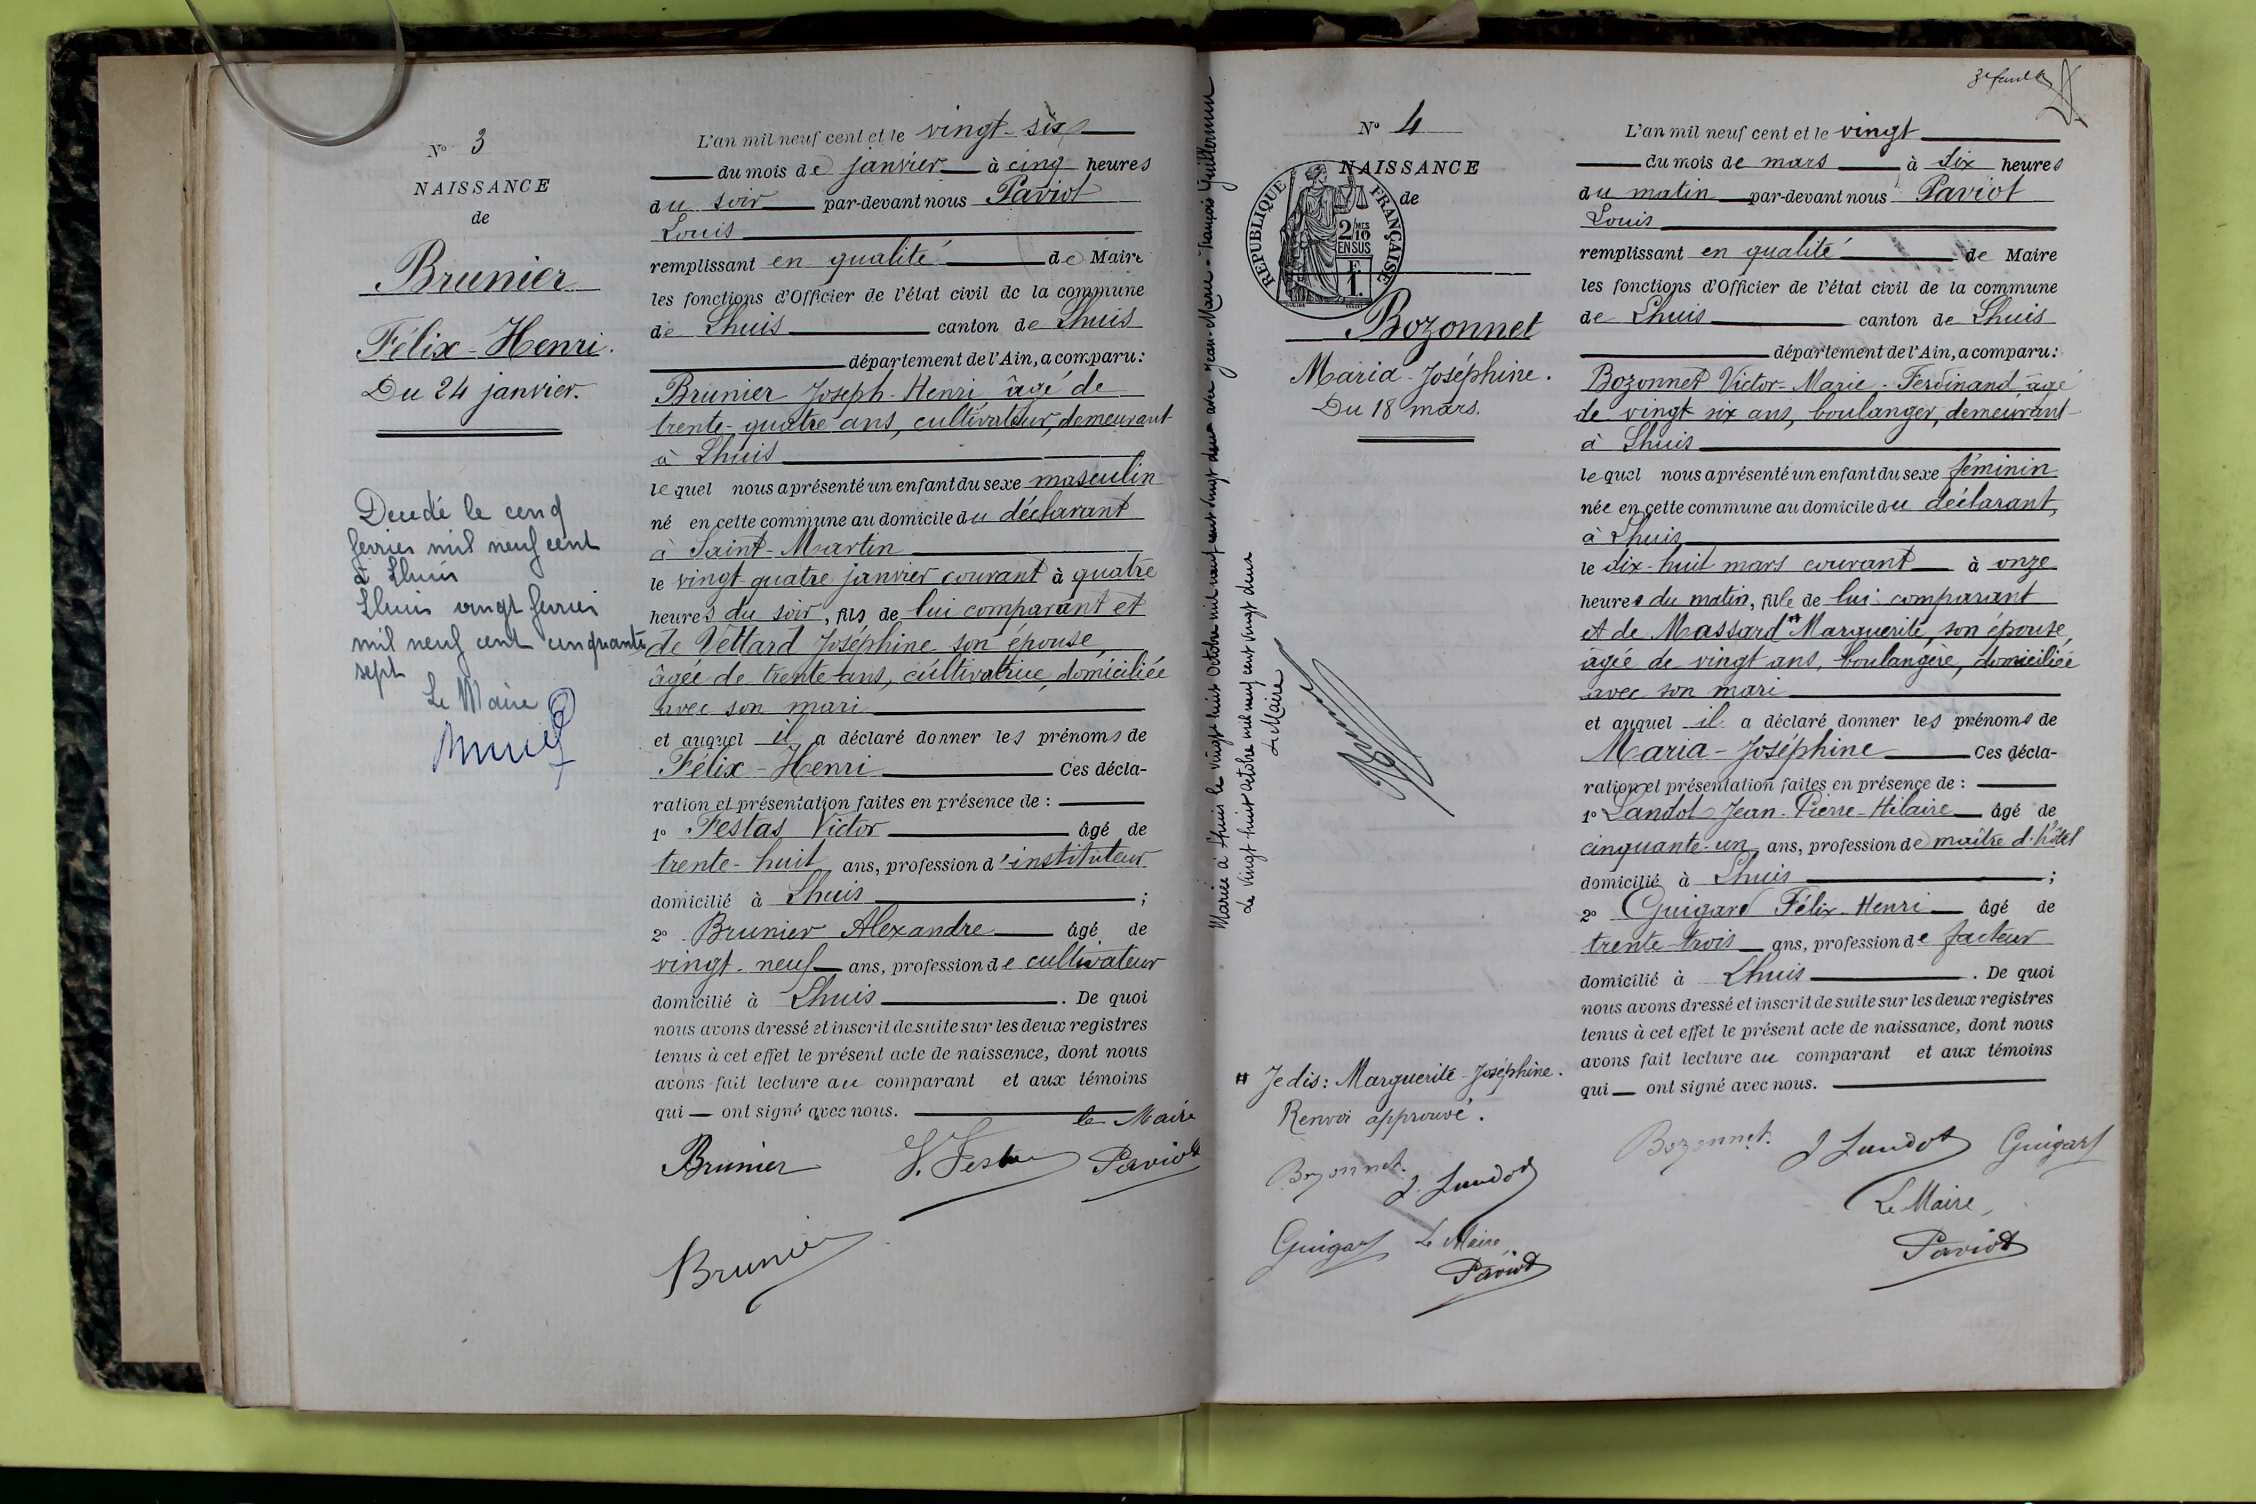 N° 3
NAISSANCE
de
Brunier
Félix-Henri.
Du 24 janvier.
Decedé le cinq
fevrier mil neuf cent
à Lhuis
Lhuis vingt fevrier
mil neuf cent cinquante
sept
Le Maire
L'an mil neuf cent et le vingt-six
du mois de janvier à cinq heures
du soir par-devant nous Paviot
Louis
remplissant en qualité de Maire
les fonctions d'Officier de l'état civil de la commune
de Lhuis canton de Lhuis
département de l'Ain, a comparu:
Brunier Joseph-Henri âgé de
trente-quatre ans, cultivateur, demeurant
à Lhuis
lequel nous a présenté un enfant du sexe masculin
né en cette commune au domicile du déclarant
à Saint-Martin
le vingt-quatre janvier courant à quatre
heures du soir, fils de lui comparant et
de Vettard Joséphine son épouse,
âgée de trente ans, cultivatrice, domiciliée
avec son mari
et auquel il a déclaré donner les prénoms de
Félix-Henri Ces décla-
ration et présentation faites en présence de :
1° Festas Victor âgé de
trente-huit ans, profession d'instituteur
domicilié à Lhuis ;
2° Brunier Alexandre âgé de
vingt-neuf ans, profession de cultivateur
domicilié à Lhuis . De quoi
nous avons dressé et inscrit de suite sur les deux registres
tenus à cet effet le présent acte de naissance, dont nous
avons fait lecture au comparant et aux témoins
qui — ont signé avec nous.
le Maire
Brunier V. Festas Paviot
Brunier
Mariée à Lhuis le vingt huit Octobre mil neuf cent vingt deux avec Jean-Marie-François Guillermin
Le vingt huit octobre mil neuf cent vingt deux
Le Maire
3e feuillet
N° 4
NAISSANCE
de
REPUBLIQUE FRANÇAISE
2/10 MES
EN SUS
F
1
Bozonnet
Maria-Joséphine.
Du 18 mars.
L'an mil neuf cent et le vingt
du mois de mars à six heures
du matin par-devant nous Paviot
Louis
remplissant en qualité de Maire
les fonctions d'Officier de l'état civil de la commune
de Lhuis canton de Lhuis
département de l'Ain, a comparu:
Bozonnet Victor-Marie-Ferdinand âgé
de vingt six ans, boulanger, demeurant
à Lhuis
lequel nous a présenté un enfant du sexe féminin
née en cette commune au domicile du déclarant,
à Lhuis
le dix-huit mars courant à onze
heures du matin, fille de lui comparant
et de Massard # Marguerite, son épouse,
âgée de vingt ans, boulangère, domiciliée
avec son mari
et auquel il a déclaré donner les prénoms de
Maria-Joséphine Ces décla-
ration et présentation faites en présence de :
1° Landot Jean-Pierre-Hilaire âgé de
cinquante-un ans, profession de maître d'hôtel
domicilié à Lhuis ;
2° Guigard Félix-Henri âgé de
trente-trois ans, profession de facteur
domicilié à Lhuis . De quoi
nous avons dressé et inscrit de suite sur les deux registres
tenus à cet effet le présent acte de naissance, dont nous
avons fait lecture au comparant et aux témoins
qui — ont signé avec nous.
Bozonnet. J Landot Guigard
Le Maire,
Paviot
# Je dis: Marguerite-Joséphine.
Renvoi approuvé.
Bozonnet. J. Landot
Guigard Le Maire,
Paviot